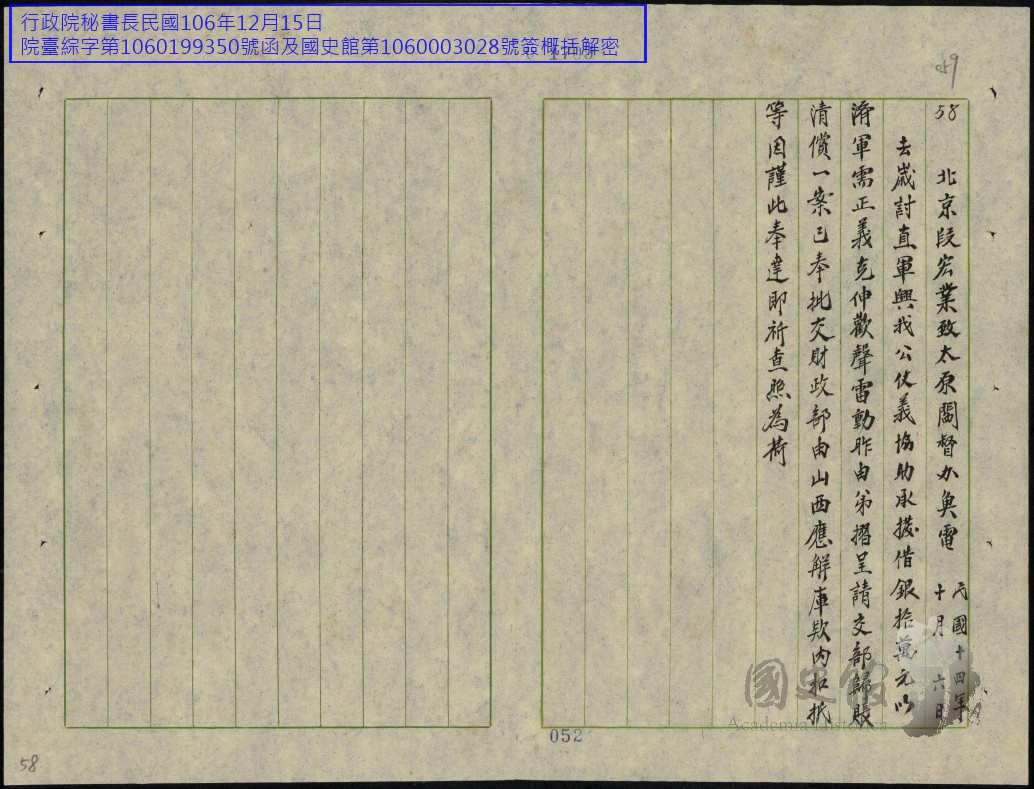 行政院秘書長民國106年12月15日
院臺綜字第1060199350號函及國史館第1060003028號簽概括解密
59
58
北京段宏業致太原閻督办奐電 民國十四年十月六日
去歲討直軍興我公仗義協助承撥借銀拾萬元以
濟軍需正義克伸歡聲雷動昨由弟摺呈請交部歸賬
清償一案已奉批交財政部由山西應解庫欵內扣抵
等因謹此奉達即祈查照為荷
國史館
Academia Historica
052
58